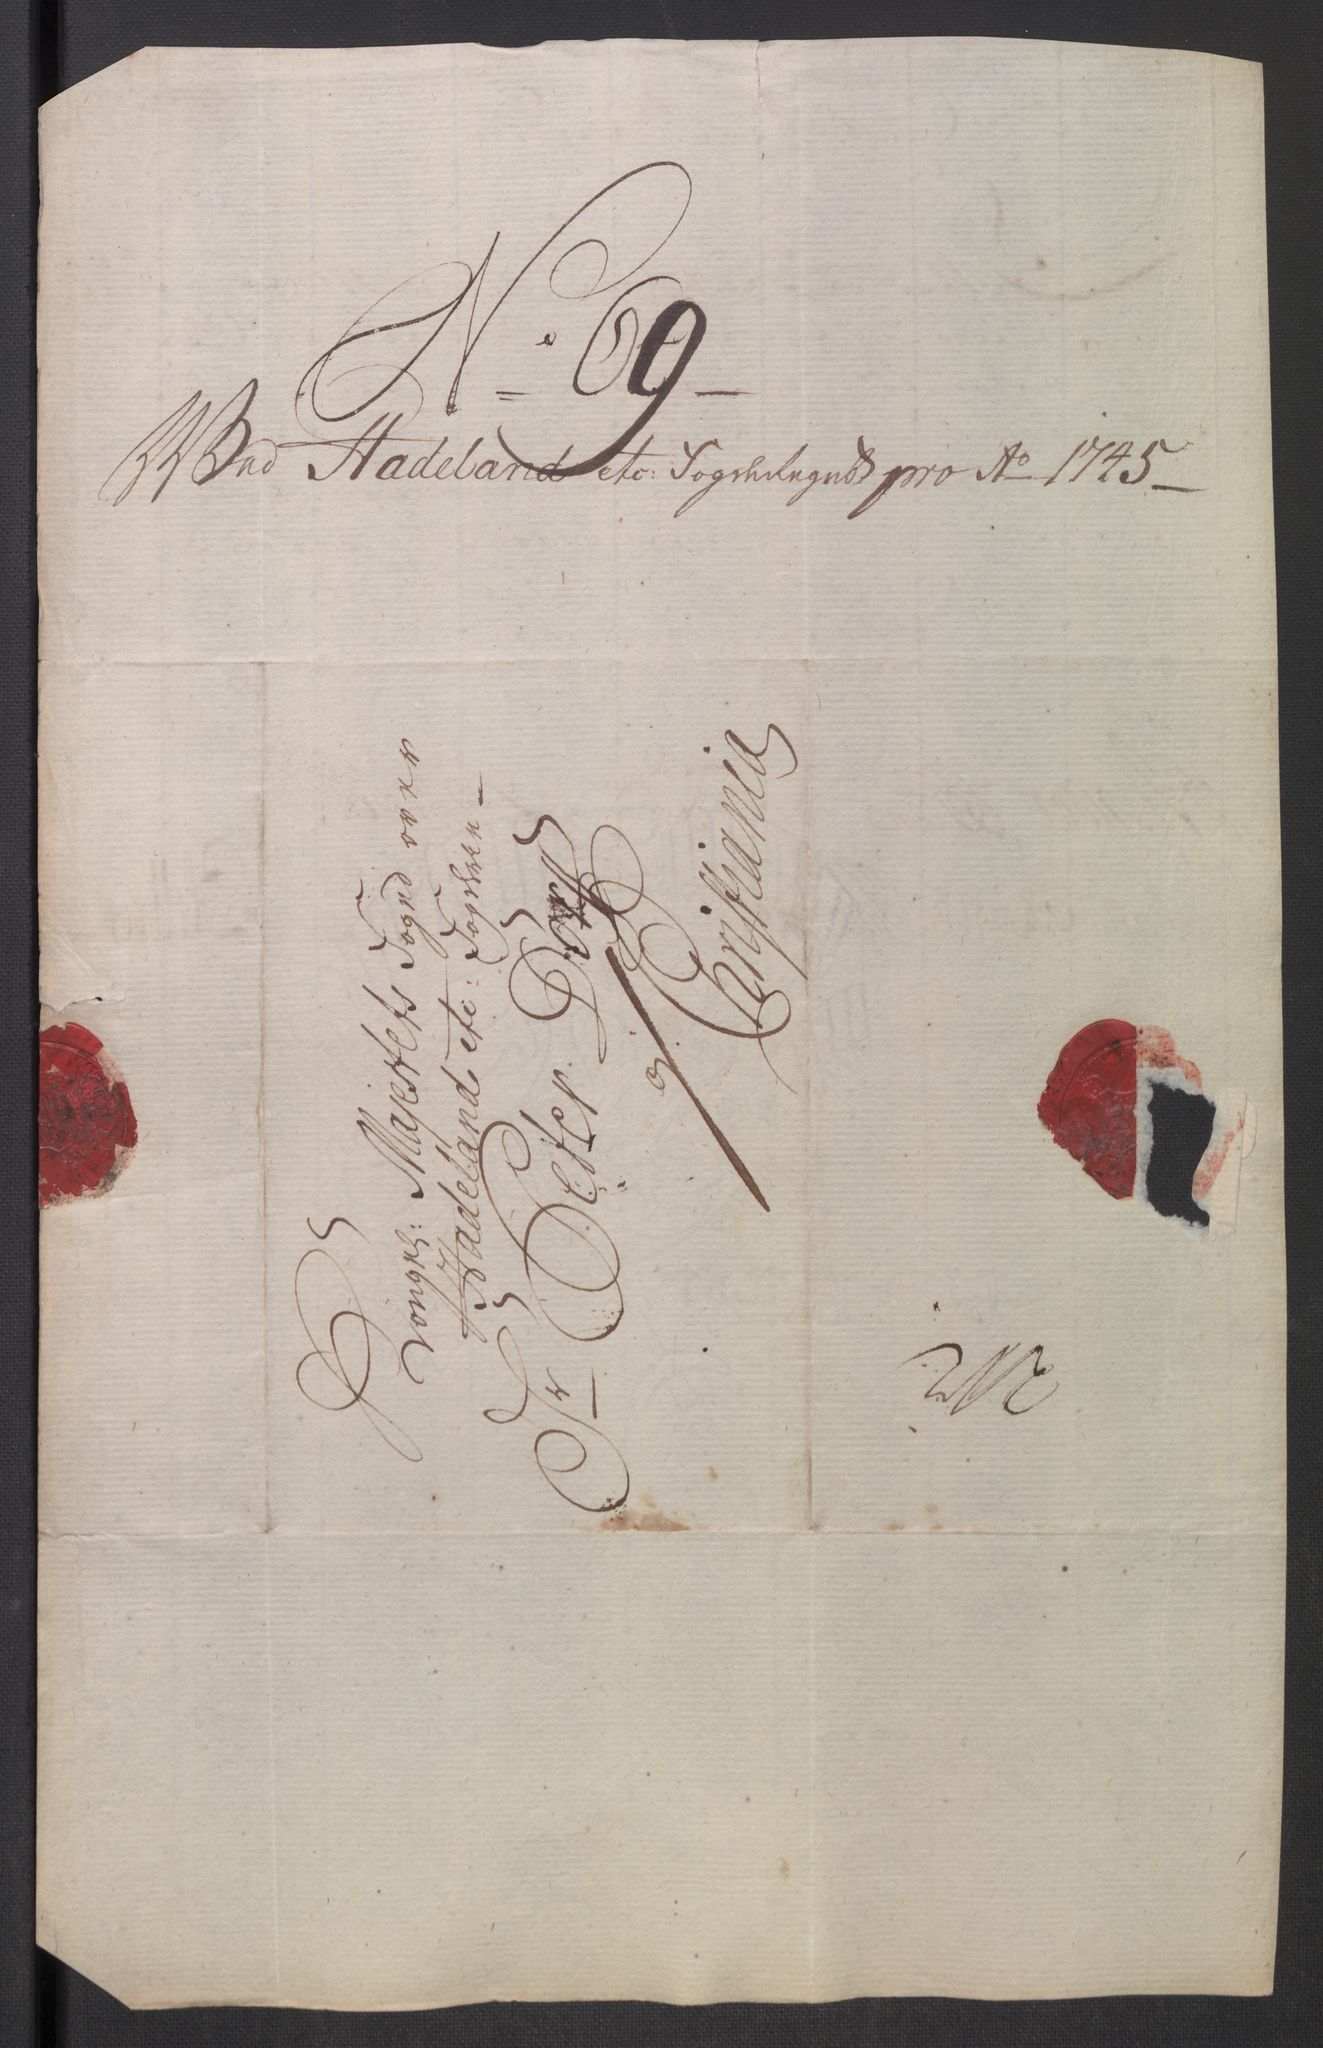 No 69
Ved Hadeland etc: Fogderegnsk pro Ao 1745
Kongel: Majestets Foged over
Hadeland etc: Fogderie
Sr Peter Dorff
Christiania